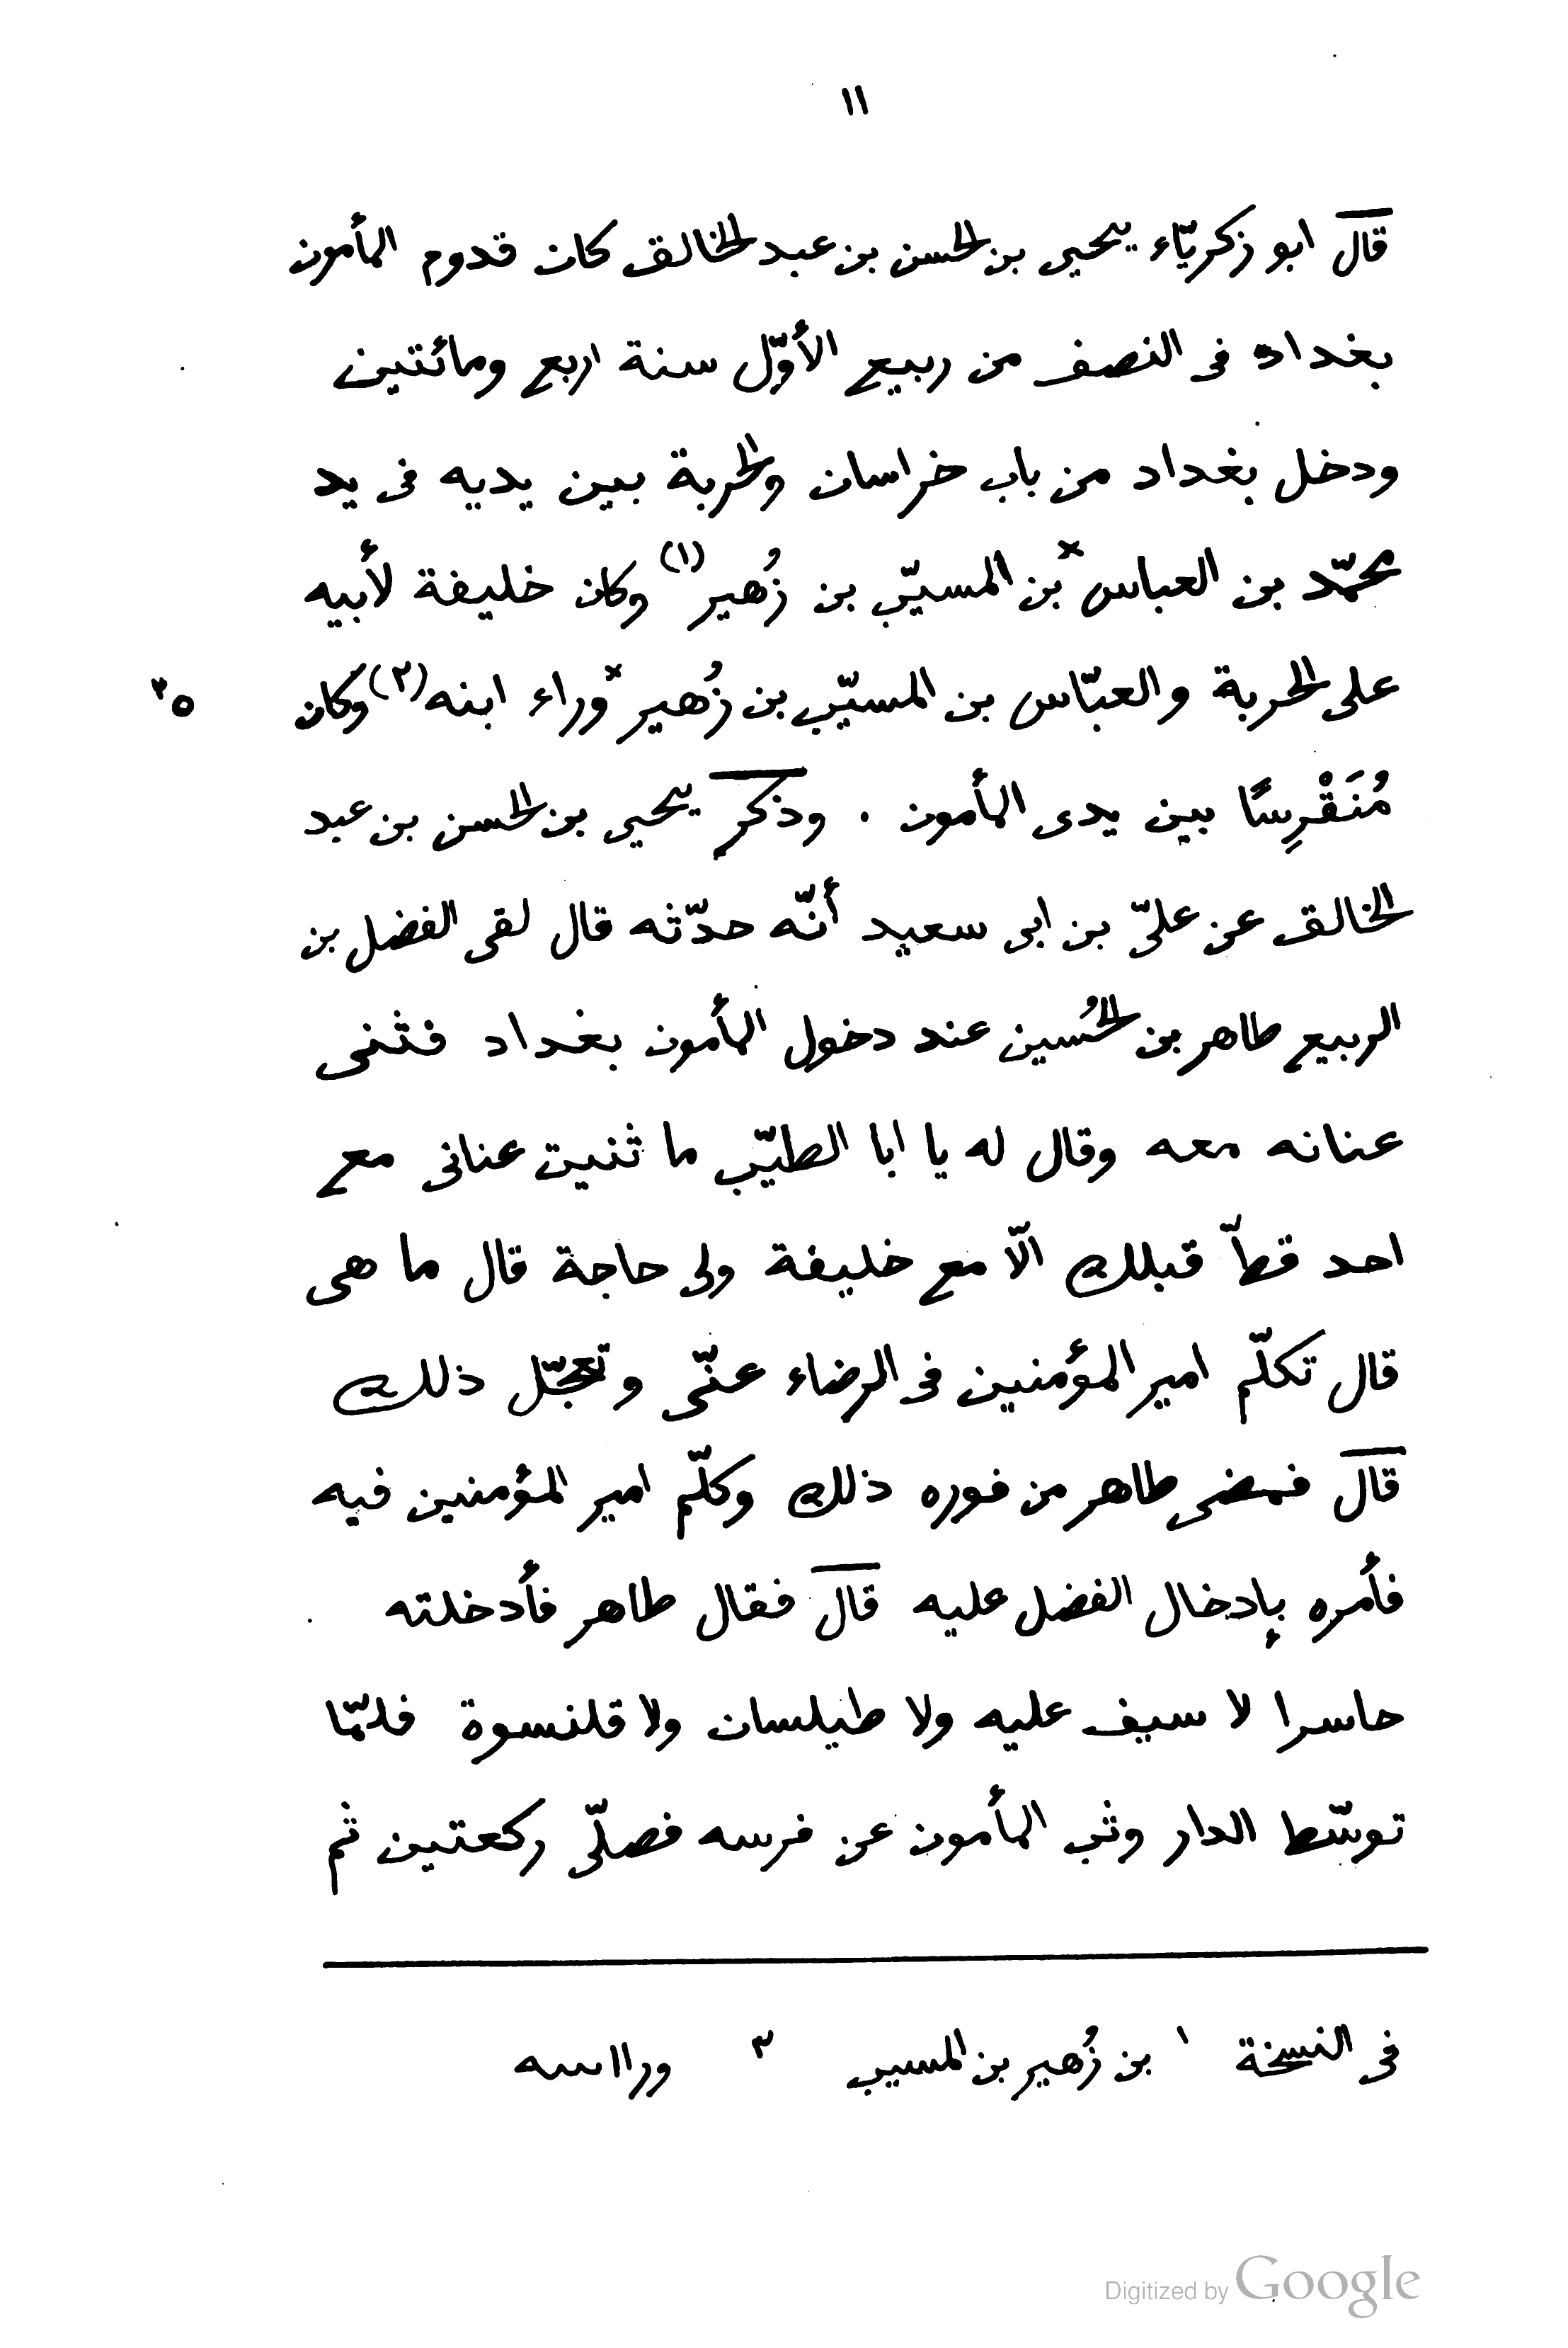 ١١
قال ابو زكريّاء يحيى بن الحسن بن عبد الخالق كان قدوم المأمون
بغداد فى النصف من ربيع الأوّل سنة اربع ومائتين
ودخل بغداد من باب خراسان والحربة بين يديه فى يد
محمّد بن العباس × بن المسيّب بن زُهير (١) وكان خليفة لأبيه
على الحربة والعبّاس بن المسيّب بن زُهير × وراء ابنه (٢) وكان
٥ ٣
مُنَقْرِسًا بين يدى المأمون . وذكر يحيى بن الحسن بن عبد
الخالق عن علىّ بن ابى سعيد أنّه حدّثه قال لقى الفضل بن
الربيع طاهر بن الحُسين عند دخول المأمون بغداد فثنى
عنانه معه وقال له يا ابا الطيّب ما ثنيت عنانى مع
احد قطّ قبلك الّا مع خليفة ولى حاجة قال ما هى
قال تكلّم امير المؤمنين فى الرضاء عنّى وتعجّل ذلك
قال فمضى طاهر من فوره ذلك وكلّم امير المؤمنين فيه
فأمره بإدخال الفضل عليه قال فقال طاهر فأدخلته
حاسرا لا سيف عليه ولا طيلسان ولا قلنسوة فلمّا
توسّط الدار وثب المأمون عن فرسه فصلّى ركعتين ثم
فى النسخة ١ بن زُهير بن المسيب ٢ وراا
Digitized by Google